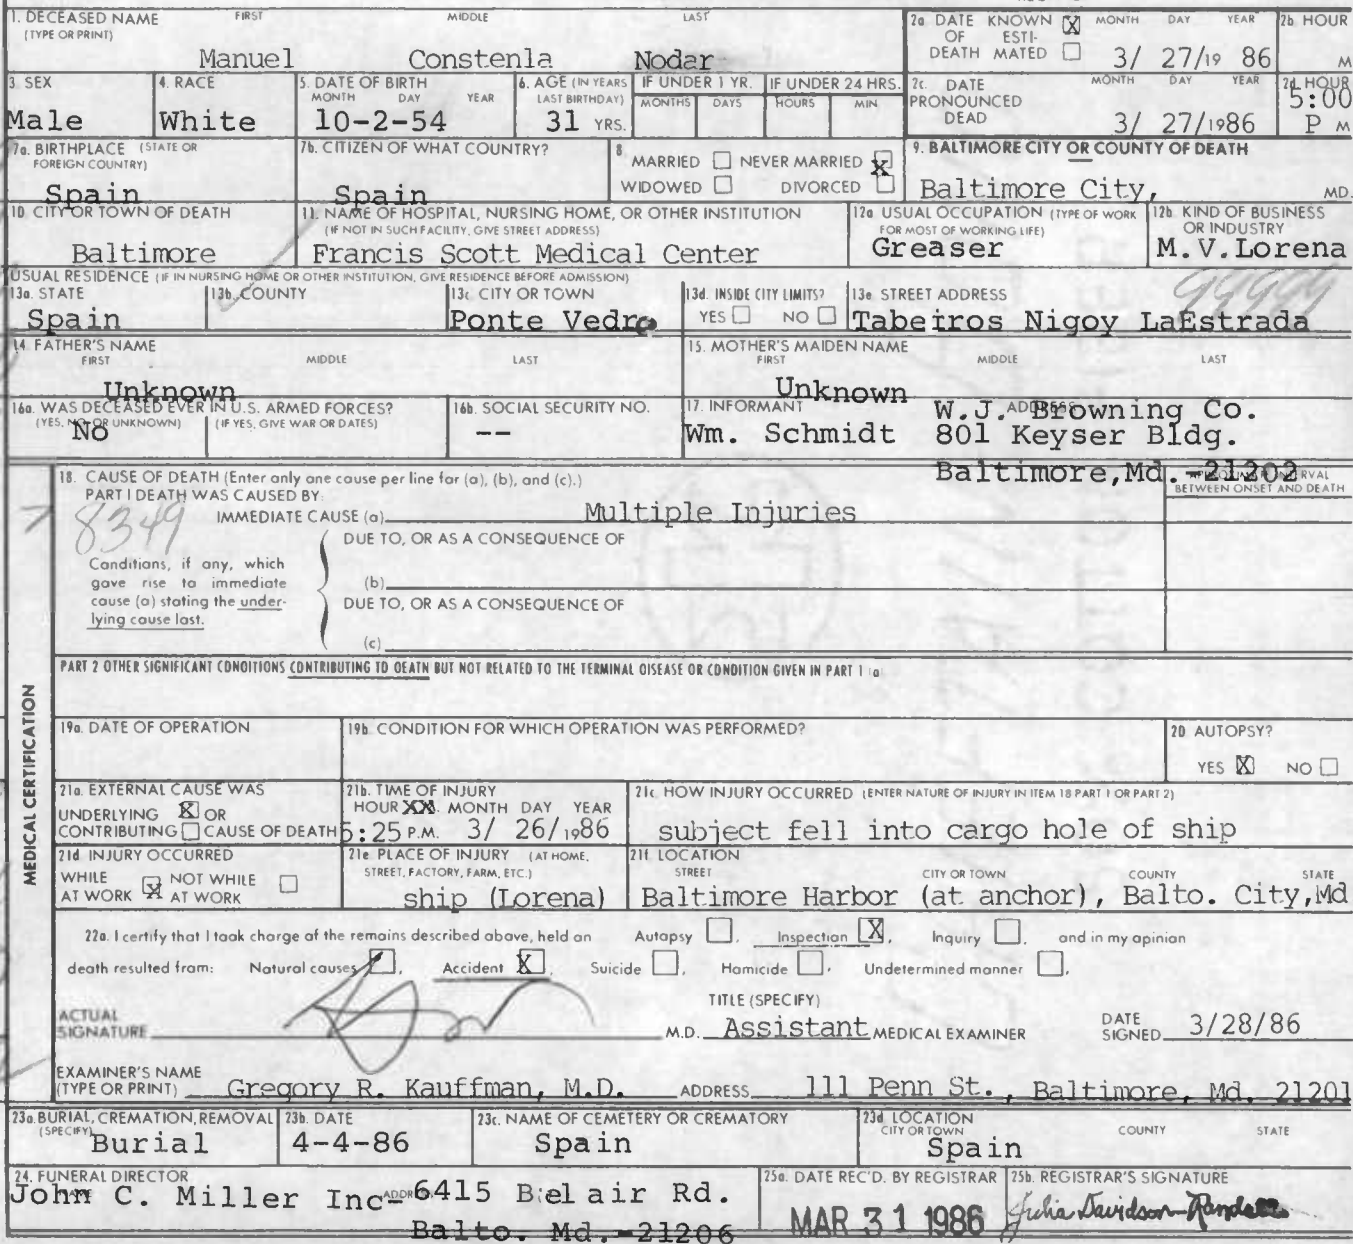 1. DECEASED NAME (TYPE OR PRINT) FIRST MIDDLE LAST
Manuel Constenla Nodar
2a DATE OF DEATH KNOWN X ESTIMATED MONTH DAY YEAR 3/ 27/19 86
2b HOUR M
3 SEX Male
4. RACE White
5. DATE OF BIRTH MONTH DAY YEAR 10-2-54
6. AGE (IN YEARS LAST BIRTHDAY) 31 YRS.
IF UNDER 1 YR. MONTHS DAYS
IF UNDER 24 HRS. HOURS MIN
2c. DATE PRONOUNCED DEAD MONTH DAY YEAR 3/ 27/1986
2d HOUR 5:00 P M
7a. BIRTHPLACE (STATE OR FOREIGN COUNTRY) Spain
7b. CITIZEN OF WHAT COUNTRY? Spain
8 MARRIED NEVER MARRIED X WIDOWED DIVORCED
9. BALTIMORE CITY OR COUNTY OF DEATH Baltimore City, MD.
10 CITY OR TOWN OF DEATH Baltimore
11. NAME OF HOSPITAL, NURSING HOME, OR OTHER INSTITUTION (IF NOT IN SUCH FACILITY, GIVE STREET ADDRESS) Francis Scott Medical Center
12a USUAL OCCUPATION (TYPE OF WORK FOR MOST OF WORKING LIFE) Greaser
12b KIND OF BUSINESS OR INDUSTRY M.V.Lorena
USUAL RESIDENCE (IF IN NURSING HOME OR OTHER INSTITUTION, GIVE RESIDENCE BEFORE ADMISSION)
13a. STATE Spain
13b. COUNTY
13c CITY OR TOWN Ponte Vedra
13d. INSIDE CITY LIMITS? YES NO
13e STREET ADDRESS Tabeiros Nigoy LaEstrada
99999
14. FATHER'S NAME FIRST MIDDLE LAST Unknown
15. MOTHER'S MAIDEN NAME FIRST MIDDLE LAST Unknown
16a. WAS DECEASED EVER IN U.S. ARMED FORCES? (YES, NO OR UNKNOWN) (IF YES, GIVE WAR OR DATES) No
16b. SOCIAL SECURITY NO. --
17. INFORMANT Wm. Schmidt ADDRESS W.J. Browning Co.
801 Keyser Bldg.
Baltimore,Md.-21202
MEDICAL CERTIFICATION
18. CAUSE OF DEATH (Enter only one cause per line for (a), (b), and (c).)
INTERVAL BETWEEN ONSET AND DEATH
PART I DEATH WAS CAUSED BY:
8349
IMMEDIATE CAUSE (a) Multiple Injuries
DUE TO, OR AS A CONSEQUENCE OF
Conditions, if any, which gave rise to immediate cause (a) stating the underlying cause last.
(b)
DUE TO, OR AS A CONSEQUENCE OF
(c)
PART 2 OTHER SIGNIFICANT CONDITIONS CONTRIBUTING TO DEATH BUT NOT RELATED TO THE TERMINAL DISEASE OR CONDITION GIVEN IN PART 1 (a)
19a. DATE OF OPERATION
19b CONDITION FOR WHICH OPERATION WAS PERFORMED?
20 AUTOPSY? YES X NO
21a. EXTERNAL CAUSE WAS UNDERLYING X OR CONTRIBUTING CAUSE OF DEATH
21b. TIME OF INJURY HOUR XX. MONTH DAY YEAR 5:25 P.M. 3/ 26/1986
21c. HOW INJURY OCCURRED (ENTER NATURE OF INJURY IN ITEM 18 PART 1 OR PART 2) subject fell into cargo hole of ship
21d INJURY OCCURRED WHILE AT WORK X NOT WHILE AT WORK
21e PLACE OF INJURY (AT HOME, STREET, FACTORY, FARM, ETC.) ship (Lorena)
21f. LOCATION STREET CITY OR TOWN COUNTY STATE Baltimore Harbor (at anchor), Balto. City,Md
22a. I certify that I took charge of the remains described above, held an Autopsy , Inspection X , Inquiry , and in my opinion
death resulted from: Natural causes , Accident X , Suicide , Homicide , Undetermined manner ,
ACTUAL SIGNATURE M.D. TITLE (SPECIFY) Assistant MEDICAL EXAMINER DATE SIGNED 3/28/86
EXAMINER'S NAME (TYPE OR PRINT) Gregory R. Kauffman, M.D. ADDRESS 111 Penn St., Baltimore, Md. 21201
23a. BURIAL, CREMATION, REMOVAL (SPECIFY) Burial
23b. DATE 4-4-86
23c. NAME OF CEMETERY OR CREMATORY Spain
23d. LOCATION CITY OR TOWN COUNTY STATE Spain
24. FUNERAL DIRECTOR John C. Miller Inc- ADDRESS 6415 Belair Rd.
Balto. Md.-21206
25a. DATE REC'D. BY REGISTRAR MAR 31 1986
25b. REGISTRAR'S SIGNATURE Julia Davidson-Randall